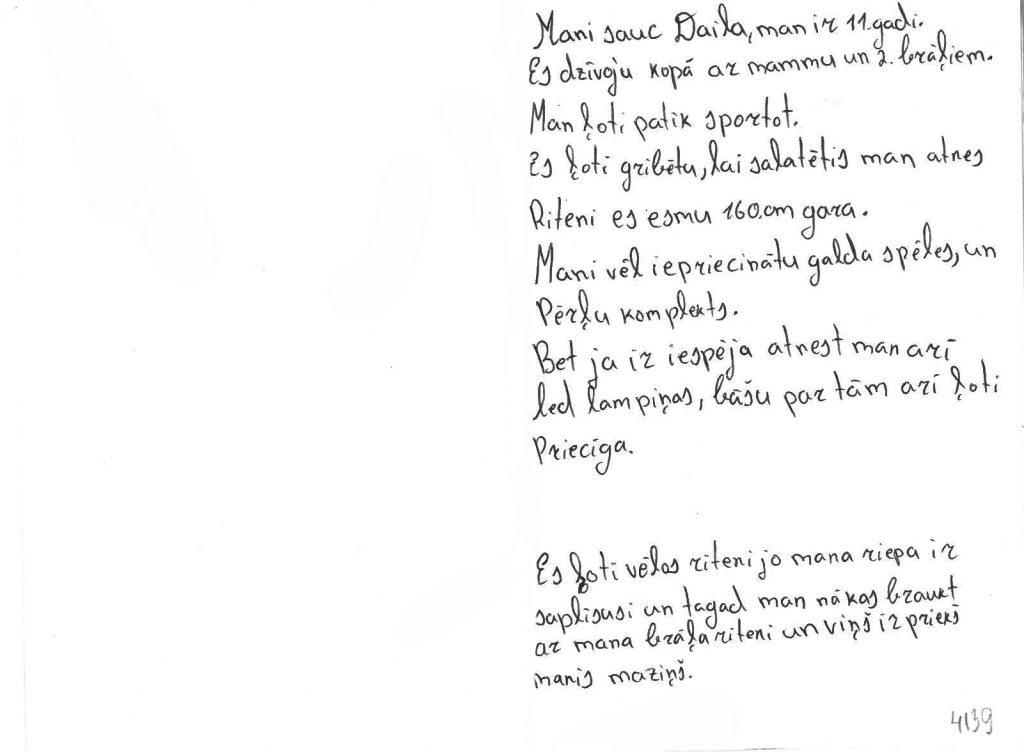 Mani sauc Daila, man ir 11.gadi.
Es dzīvoju kopā ar mammu un 2. brāļiem.
Man ļoti patīk sportot.
Es ļoti gribētu, lai salatētis man atnes
Riteni es esmu 160.cm gara.
Mani vēl iepriecinātu galda spēles, un
Pērļu komplekts.
Bet ja ir iespēja atnest man arī
led lampiņas, būšu par tām arī ļoti
Priecīga.
Es ļoti vēlos riteni jo mana riepa ir
saplīsusi un tagad man nākas braukt
ar mana brāļa riteni un viņš ir priekš
manis maziņš.
4139